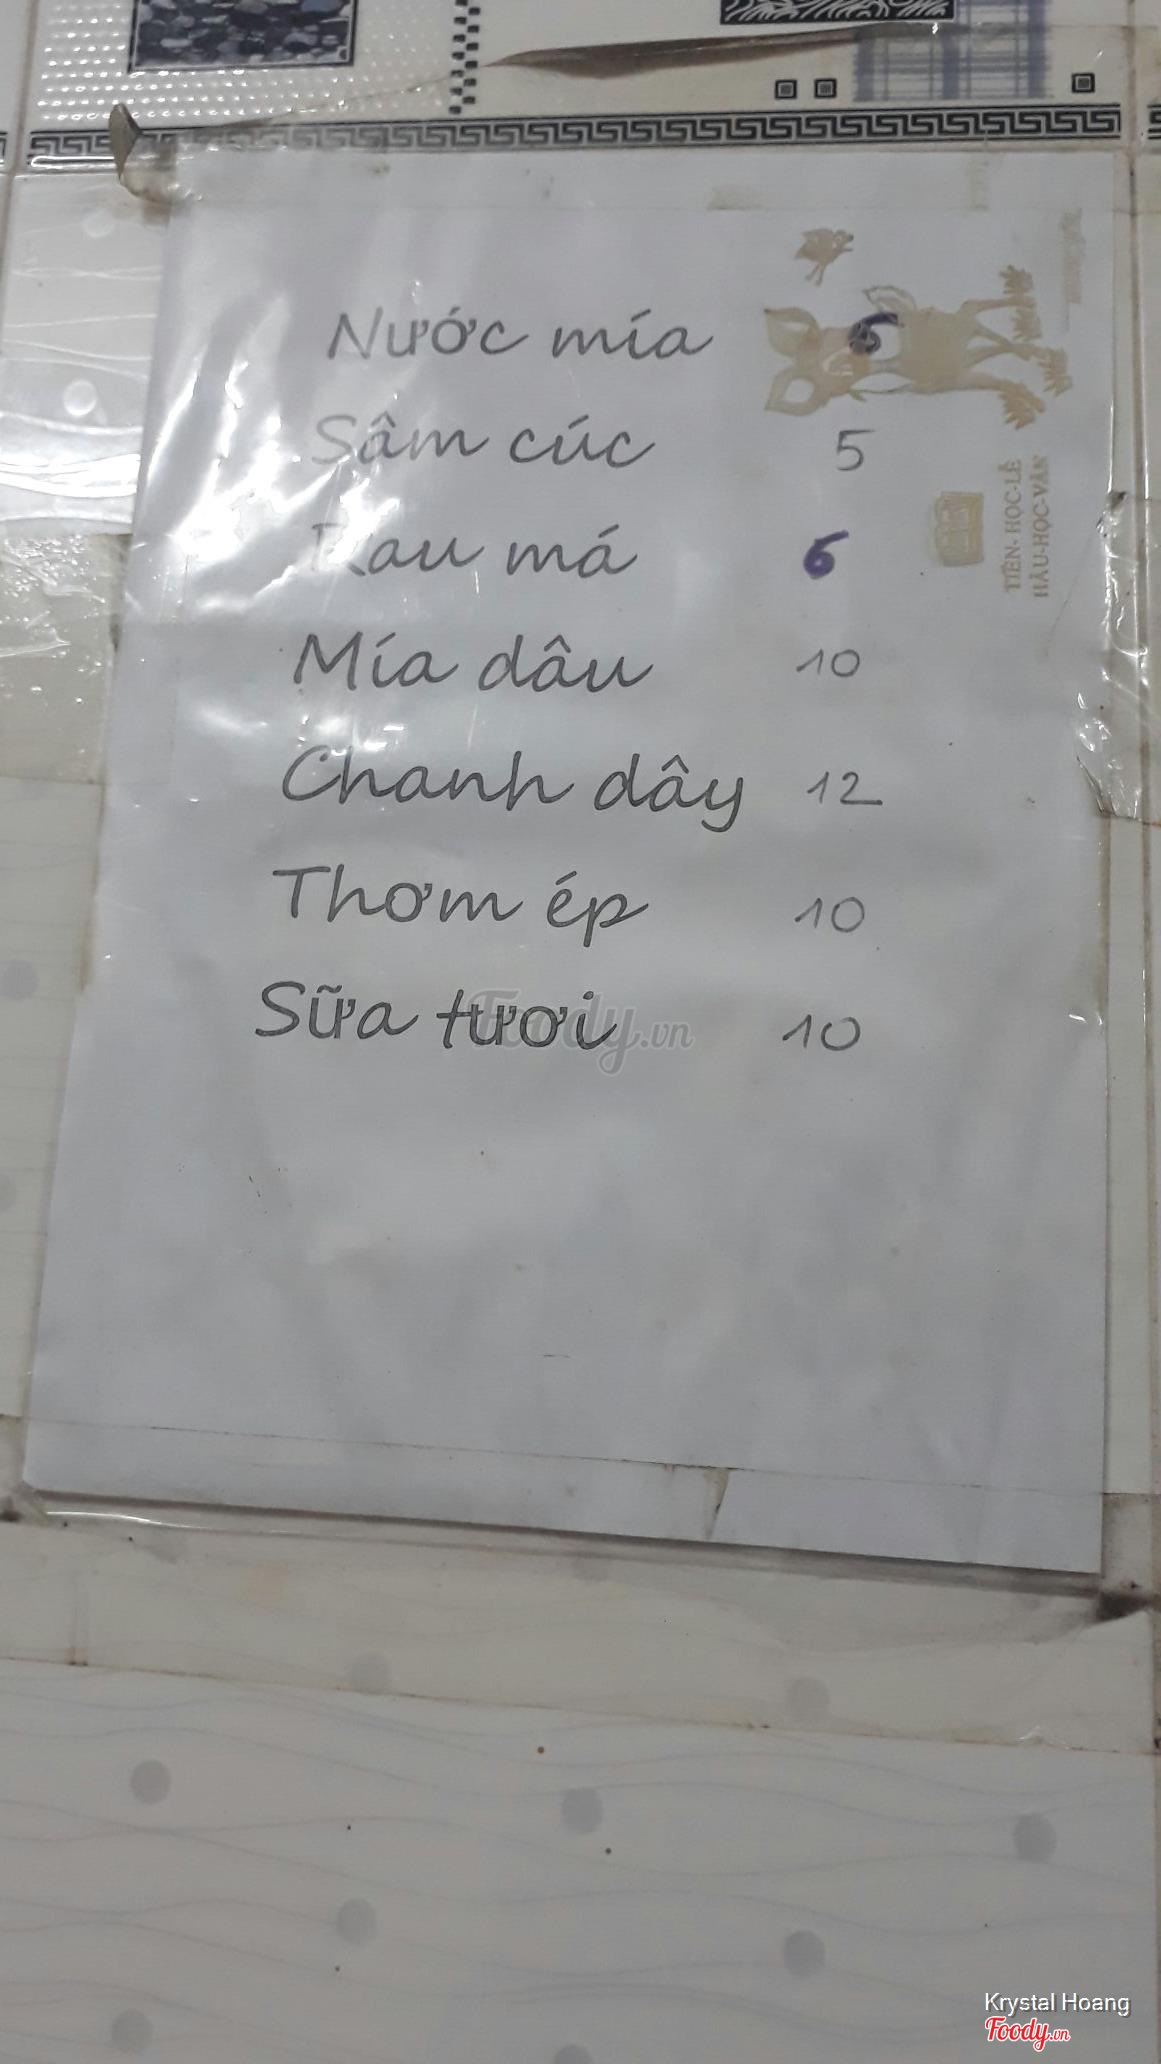 Nước mía 6
Sâm cúc 5
Rau má 6
Mía dâu 10
Chanh dây 12
Thơm ép 10
Sữa tươi 10
TIÊN-HỌC-LỄ
HẬU-HỌC-VĂN
Foody.vn
Krystal Hoang
Foody.vn